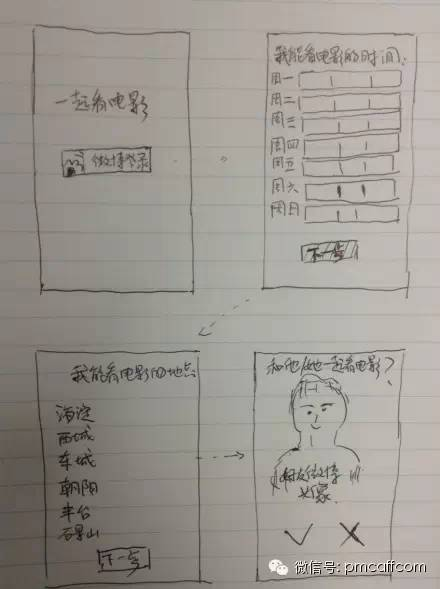 一起看电影
微博登录
我能看电影的时间:
周一
周二
周三
周四
周五
周六
周日
下一步
我能看电影的地点:
海淀
西城
东城
朝阳
丰台
石景山
下一步
和他/她一起看电影?
朋友微博
头像
微信号: pmcaffcom